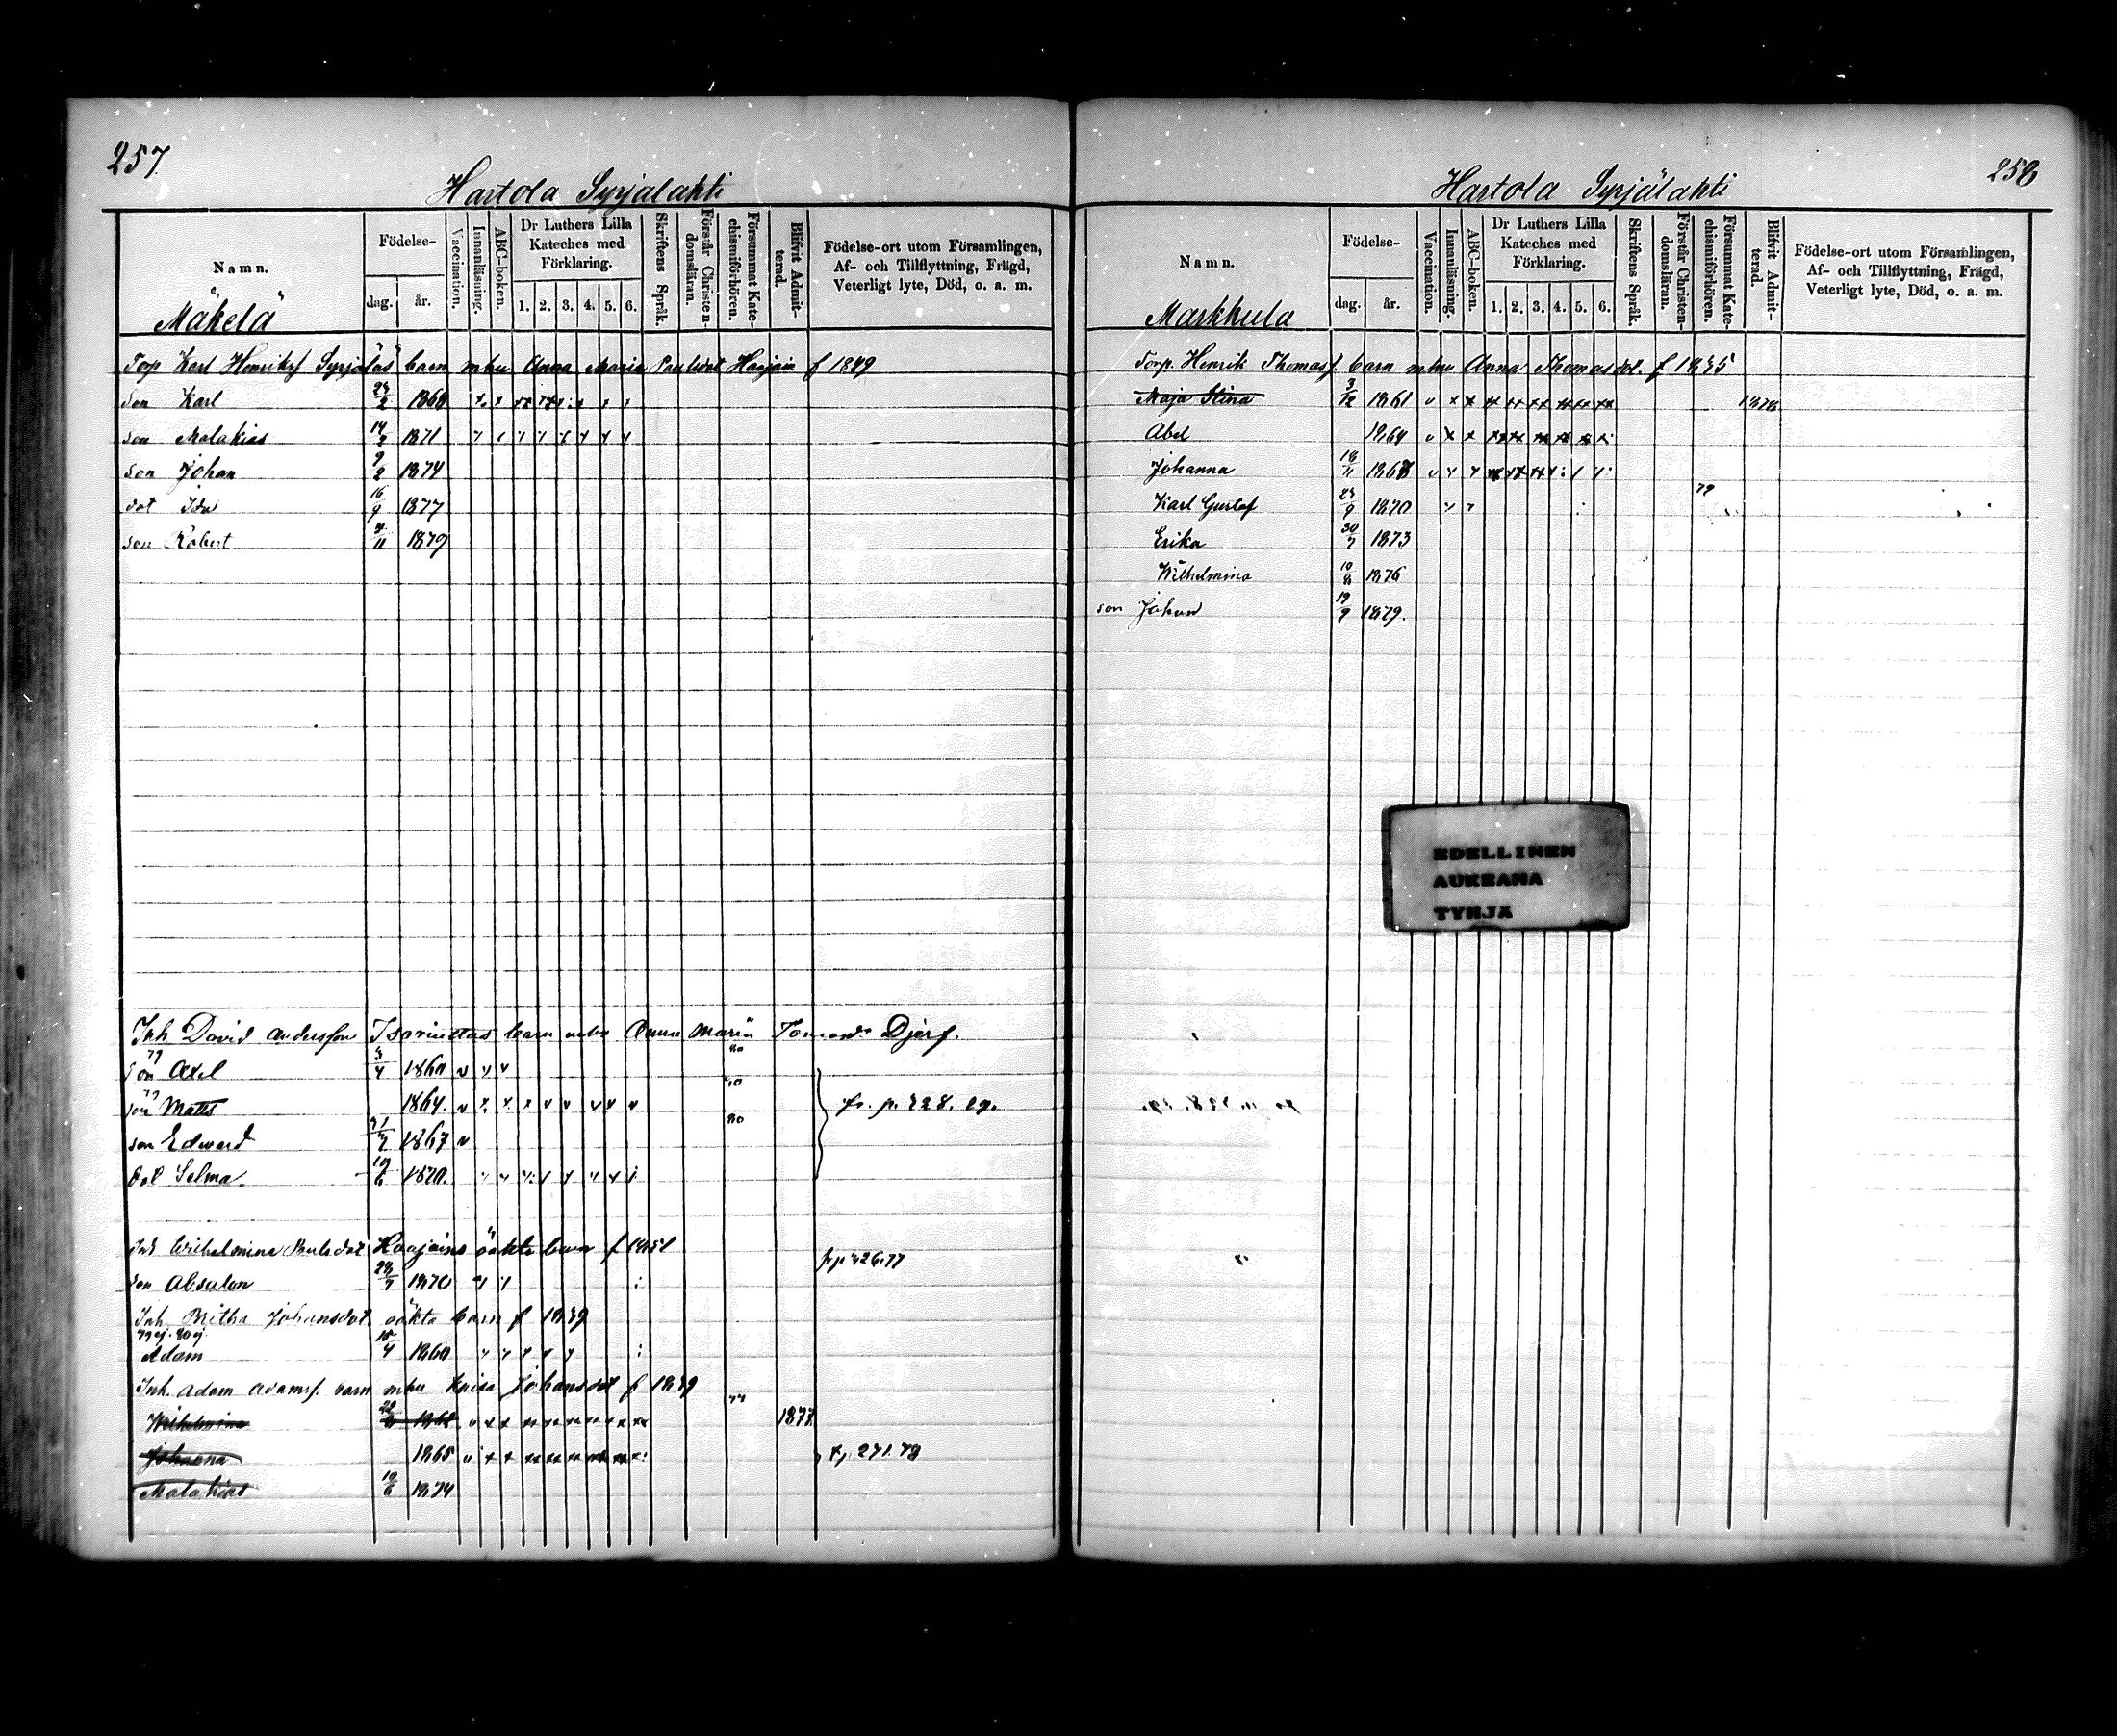 257.
Hartola Syrjalahti
Namn.
Födelse-
dag. år.
Vaccination.
Innanläsning.
ABC-boken.
Dr Luthers Lilla Kateches med Förklaring.
1. 2. 3. 4. 5. 6.
Skriftens Språk.
Förstår Christendomsläran.
Försummat Katechismiförhören.
Blifvit Admitterad.
Födelse-ort utom Församlingen, Af- och Tillflyttning, Frägd, Veterligt lyte, Död, o. a. m.
Mäkelä
Torp Karl Henriksf Syrjäläs barn mhu Anna Maria Paulsdot Haajain f 1849
son Karl 24/2 1868
son Malakias 14/2 1871
son Johan 9/2 1874
dot Ida 16/9 1877
son Robert 4/11 1879
Inh David Andersson barn mhu Anna Maria Djerf.
79 80
son Axel 3/4 1860
79 80
son Matts 1864. fr. p. 428. 29.
80
son Edward 31/7 1867
dot Selma 19/6 1870.
Inh Wilhelmina Paulsdot Haajains oäkta barn f 1851
son Absalon 28/7 1870 fr p 426.77
Inh. Britha Johansdot oäkta barn f 1839
79 ej. 80 ej.
Adam 15/4 1860
Inh. Adam Adamsf. barn mhu Kaisa Johansdot f 1839
77
Wilhelmina 22/6 1861 1877
Johanna 1865 271.79
Malakias 10/6 1874
258
Hartola Syrjälahti
Namn.
Födelse-
dag. år.
Vaccination.
Innanläsning.
ABC-boken.
Dr Luthers Lilla Kateches med Förklaring.
1. 2. 3. 4. 5. 6.
Skriftens Språk.
Förstår Christendomsläran.
Försummat Katechismiförhören.
Blifvit Admitterad.
Födelse-ort utom Församlingen, Af- och Tillflyttning, Frägd, Veterligt lyte, Död, o. a. m.
Markkula
Torp. Henrik Thomasf. barn mhu Anna Thomasdot. f 1835
Maja Stina 3/12 1861 1878
Abel 1864
Johanna 18/11 1867
79
Karl Gustaf 24/9 1870
Erika 30/7 1873
Wilhelmina 10/8 1876
son Johan 19/9 1879.
EDELLINEN
AUKEAMA
TYHJÄ